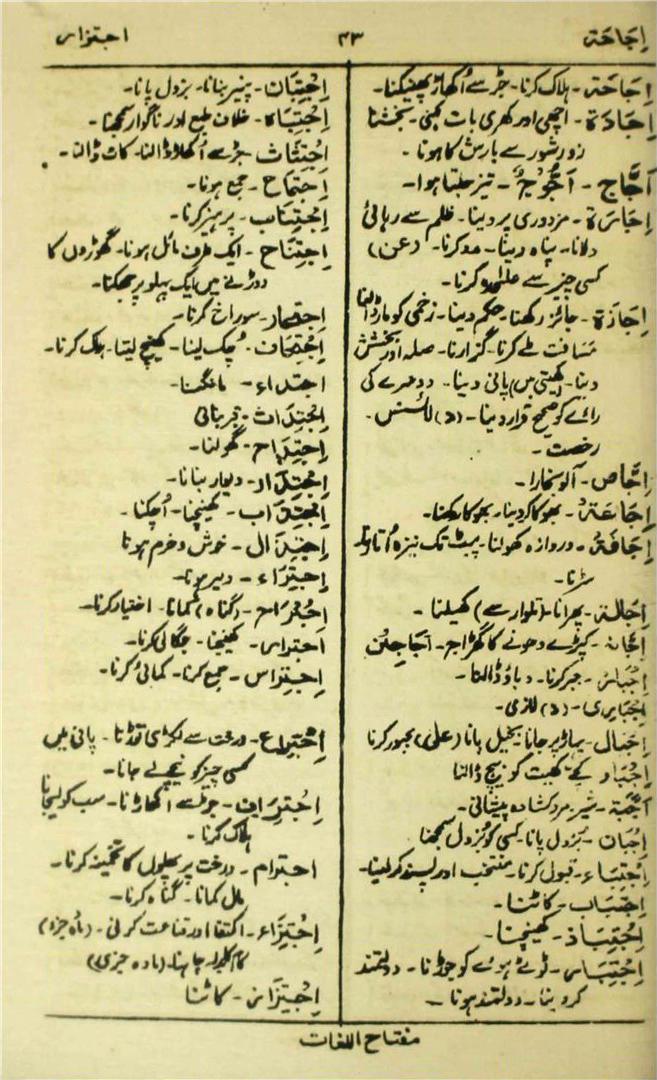 اِجَاحَة
۴۳
اجتزار
اِجَاحَة۔ ہلاک کرنا۔ جڑ سے اُکھاڑ پھینکنا۔
اِجَادَة۔ اچھی اور کھری بات کہنی۔ بخشنا
زور شور سے بارش کا ہونا۔
اَجَّاج۔ اَجُوْجٌ۔ تیز جلتا ہوا۔
اِجَارَة۔ مزدوری پر دینا۔ ظلم سے رہائی
دلانا۔ پناہ دینا۔ مدد کرنا۔ (عن)
کسی چیز سے علیٰحدہ کرنا۔
اِجَازَة۔ جائز رکھنا۔ حکم دینا۔ زخمی کو مار ڈالنا
مسافت طے کرنا۔ گزارنا۔ صلہ اور بخشش
دینا۔ (کھیتی میں) پانی دینا۔ دوسرے کی
رائے کو صحیح قرار دینا۔ (د) لائسنس۔
رخصت۔
اِجَّاص۔ آلو بخارا۔
اِجَاعَةٌ۔ بھوکا کر دینا۔ بھوکا رکھنا۔
اِجَافَةٌ۔ دروازہ کھولنا۔ پیٹ تک نیزہ اُتارنا۔
سڑنا۔
اِجَالَة۔ پھرانا۔ (تلوار سے) کھیلنا۔
اِجَّانَة۔ کپڑے دھونے کا گھڑا ج۔ اَجَاجِیْن
اِجْبَار۔ جبر کرنا۔ دباؤ ڈالنا۔
اِجْبَارِی۔ (د) لازمی۔
اِجْبَال۔ پہاڑ پر جانا۔ بخیل پانا (علی) مجبور کرنا
اِجْبَاء کچے کھیت کو بیچ ڈالنا
اَجْبَة۔ شیر۔ مرد کشادہ پیشانی۔
اِجْبَان۔ بزدل پانا۔ کسی کو بزدل سمجھنا
اِجْتِبَاء۔ قبول کرنا۔ منتخب اور پسند کر لینا۔
اِجْتِبَاب۔ کاٹنا۔
اِجْتِبَاذ۔ کھینچنا۔
اِجْتِبَار۔ ٹوٹے ہوئے کو جوڑنا۔ دولتمند
کر دینا۔ دولتمند ہونا۔
اِجْتِبَان۔ پنیر بنانا۔ بزدل پانا۔
اِجْتِبَاہ۔ خلاف طبع اور ناگوار سمجھنا۔
اِجْتِثَاث۔ جڑ سے اُکھاڑ ڈالنا۔ کاٹ ڈالنا۔
اِجْتِمَاح۔ جمع ہونا۔
اِجْتِنَاب۔ پرہیز کرنا۔
اِجْتِنَاح۔ ایک طرف مائل ہونا۔ گھوڑوں کا
دوڑنے میں ایک پہلو پر جھکنا۔
اِجتحار۔ سوراخ کرنا۔
اِجْتِحَاف۔ اُچک لینا۔ کھینچ لینا۔ ہلاک کرنا۔
اجتداء۔ مانگنا۔
اِجْتِدَاث۔ قبر بنانی
اِجْتِدَاح۔ گھولنا۔
اِجْتِدَار۔ دیوار بنانا۔
اِجْتِذَاب۔ کھینچنا۔ اُچکنا۔
اِجْتِذَال۔ خوش و خرم ہونا
اِجْتِرَاء۔ دلیر ہونا۔
اِجْتِرَاح۔ (گناہ) کمانا۔ اختیار کرنا۔
اجترار۔ کھینچنا۔ جگالی کرنا۔
اِجْتِرَاس۔ جمع کرنا۔ کمائی کرنا۔
اِجْتِرَاع۔ درخت سے لکڑی توڑنا۔ پانی میں
کسی چیز کو نیچے لے جانا۔
اِجْتِرَاف۔ جڑ سے اُکھاڑنا۔ سب کو لیجانا
ہلاک کرنا۔
اجترام۔ درخت پر پھلوں کا تخمینہ کرنا۔
مال کمانا۔ گناہ کرنا۔
اِجْتِزَاء۔ اکتفا اور قناعت کرنی۔ (مادہ جزء)
کام کا بدلہ چاہنا۔ (مادہ جزی)
اِجْتِزَار۔ کاٹنا
مفتاح اللغات